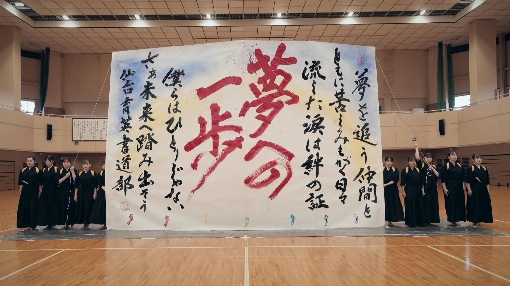 夢を追う仲間と
ともに苦しみもがく日々
流した涙は絆の証
夢への
一歩
僕らはひとりじゃない
さあ未来へ踏み出そう
仙台育英書道部